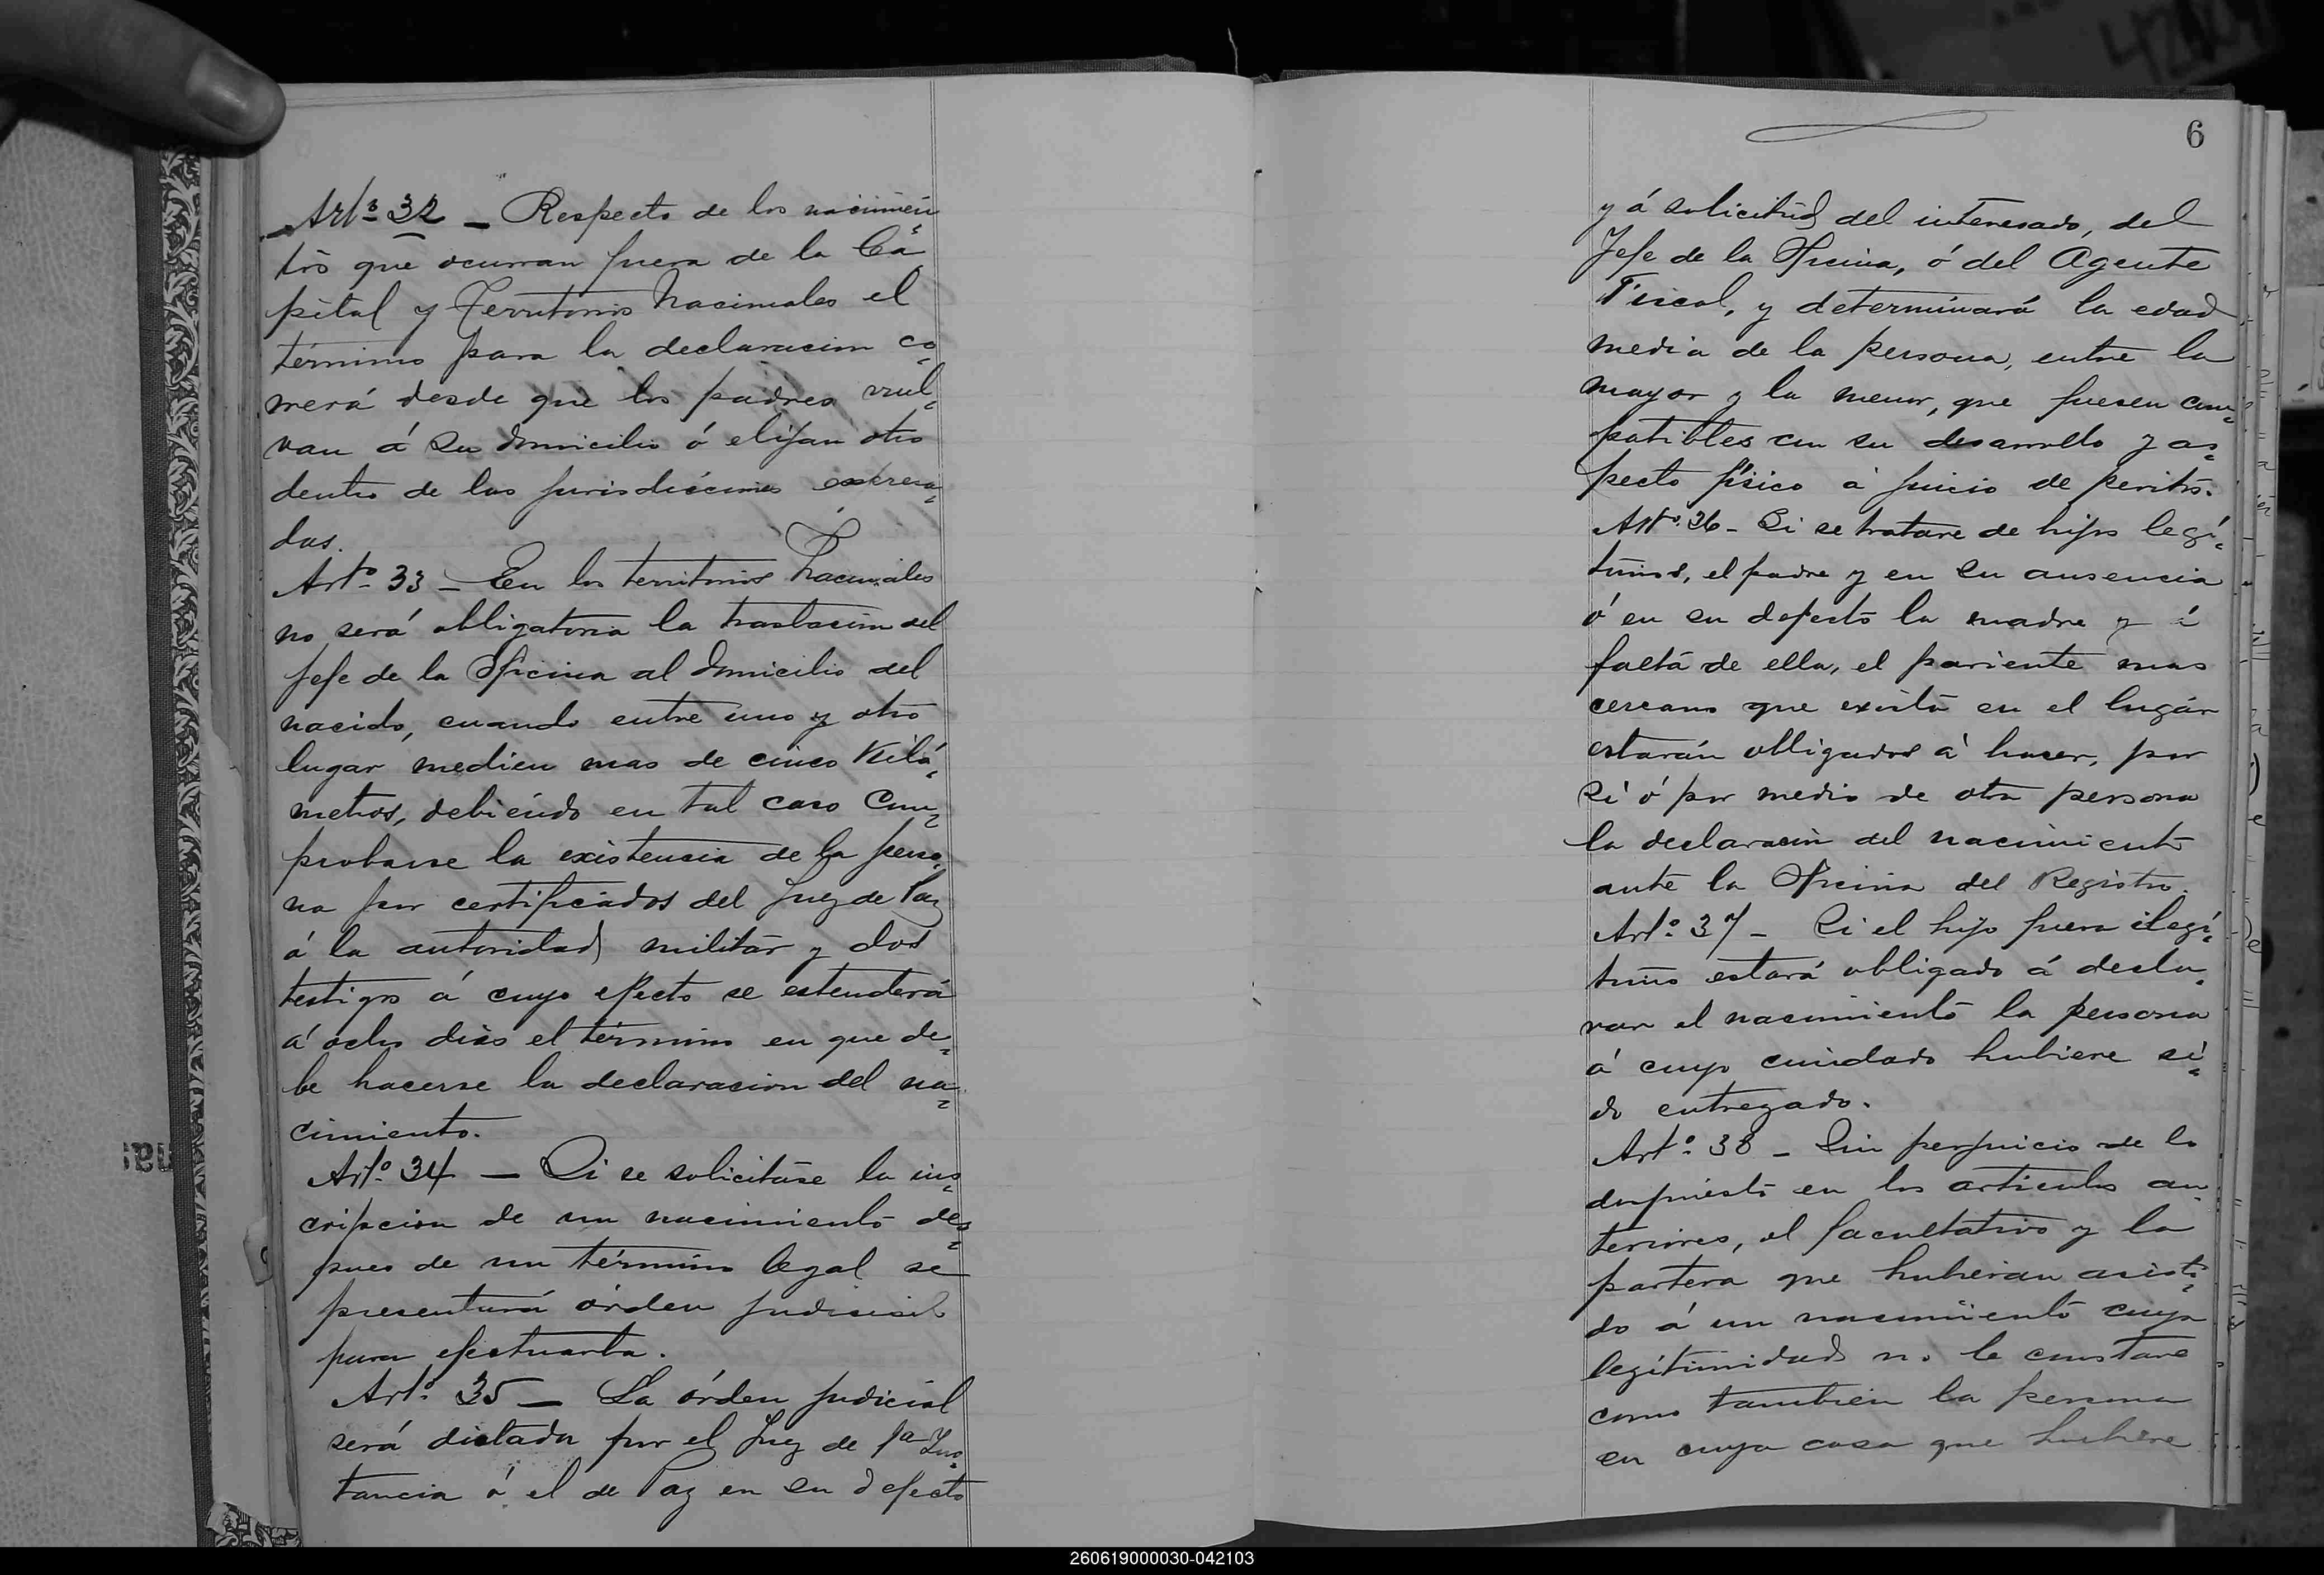 Artº 32 — Respecto de los nacimien
tos que ocurran fuera de la Ca
pital y Territorios Nacionales el
término para la declaracion co
rrerá desde que los padres vuel
van á su domicilio ó elijan otro
dentro de las jurisdicciones expresa
das.
Artº 33 — En los territorios Nacionales
no será obligatoria la traslacion del
Jefe de la Oficina al domicilio del
nacido, cuando entre uno y otro
lugar medien mas de cinco Kiló
metros, debiendo en tal caso com
probarse la existencia de la perso
na por certificados del Juez de Paz
á la autoridad militar y dos
testigos á cuyo efecto se estenderá
á ocho dias el término en que de
be hacerse la declaracion del na
cimiento.
Artº 34 — Si se solicitáse la ins
cripcion de un nacimiento des
pues de un término legal se
presentará órden judicial
para efectuarla.
Artº 35 — La órden judicial
será dictada por el Juez de 1a Ins
tancia ó el de Paz en su defecto
6
y á solicitud del interesado, del
Jefe de la Oficina, ó del Agente
Fiscal, y determinará la edad
media de la persona, entre la
mayor y la menor, que fuesen com
patibles con su desarrollo y as
pecto físico á juicio de peritos.
Artº 36 — Si se tratare de hijos legí
timos, el padre y en su ausencia
ó en su defecto la madre y á
falta de ella, el pariente mas
cercano que exista en el lugar
estarán obligados á hacer, por
si ó por medio de otra persona
la declaracion del nacimiento
ante la Oficina del Registro.
Artº 37 — Si el hijo fuera ilegí
timo estará obligado á decla
rar el nacimiento la persona
á cuyo cuidado hubiere si
do entregado.
Artº 38 — Sin perjuicio de lo
dispuesto en los articulos an
teriores, el facultativo y la
partera que hubieran asisti
do á un nacimiento cuya
legitimidad no le constare
como tambien la persona
en cuya casa que hubiere
260619000030-042103